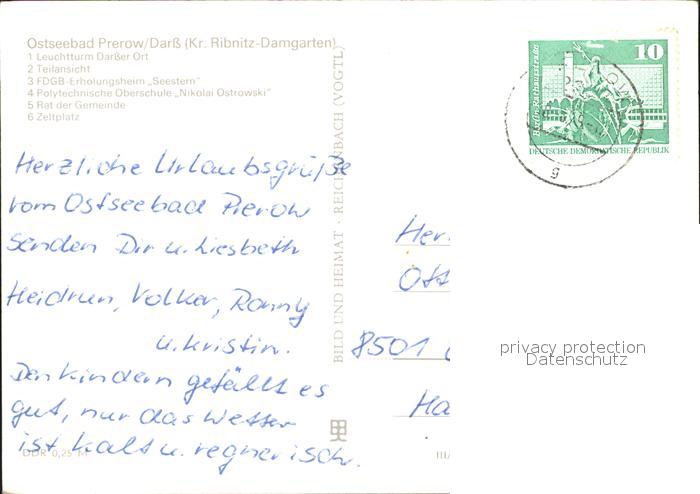 Ostseebad Prerow/Darß (Kr. Ribnitz-Damgarten)
1 Leuchtturm Darßer Ort
2 Teilansicht
3 FDGB-Erholungsheim „Seestern"
4 Polytechnische Oberschule „Nikolai Ostrowski"
5 Rat der Gemeinde
6 Zeltplatz
Herzliche Urlaubsgrüße
vom Ostseebad Prerow
senden Dir u. Liesbeth
Heidrun, Volker, Ronny
u. Kristin.
Den Kindern gefällt es
gut, nur das Wetter
ist kalt u. regnerisch.
DDR 0,25 M
BILD UND HEIMAT · REICHENBACH (VOGTL)
III/
10
Berlin-Rathausstraße
DEUTSCHE DEMOKRATISCHE REPUBLIK
g
Her
Ost
8501
Ha
privacy protection
Datenschutz